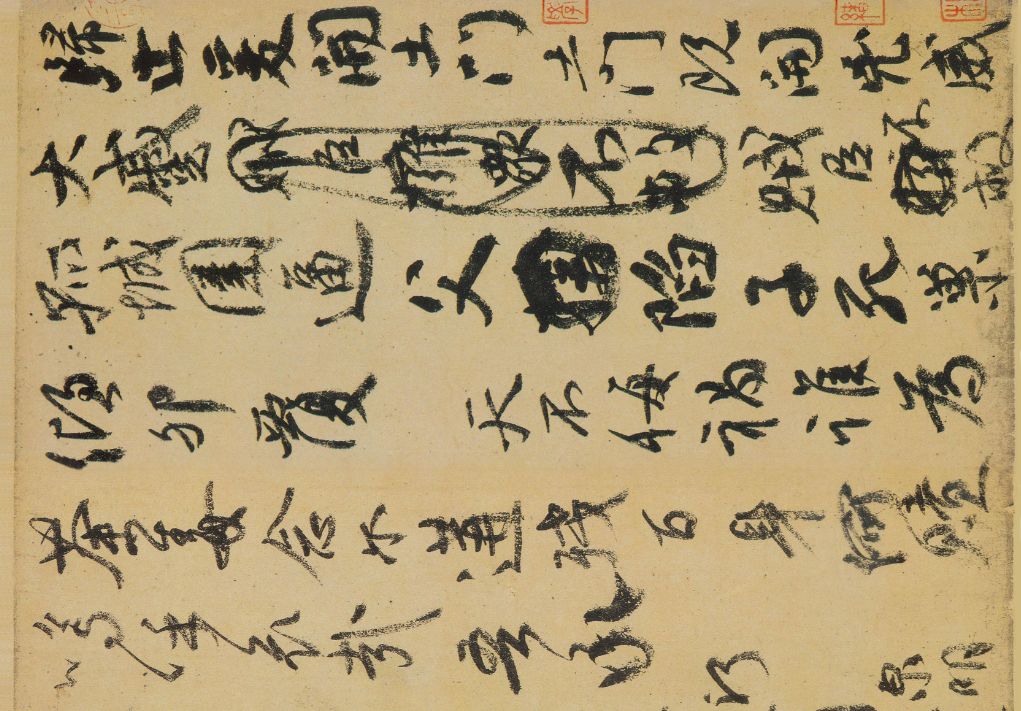 歸止爰開土門土門既開凶威
大蹙賊臣擁衆不救賊臣不救
孤城圍逼父陷子死巢
傾卵覆天不悔禍誰爲
荼毒念爾遘殘百身何贖
嗚乎哀哉吾承
河泉明